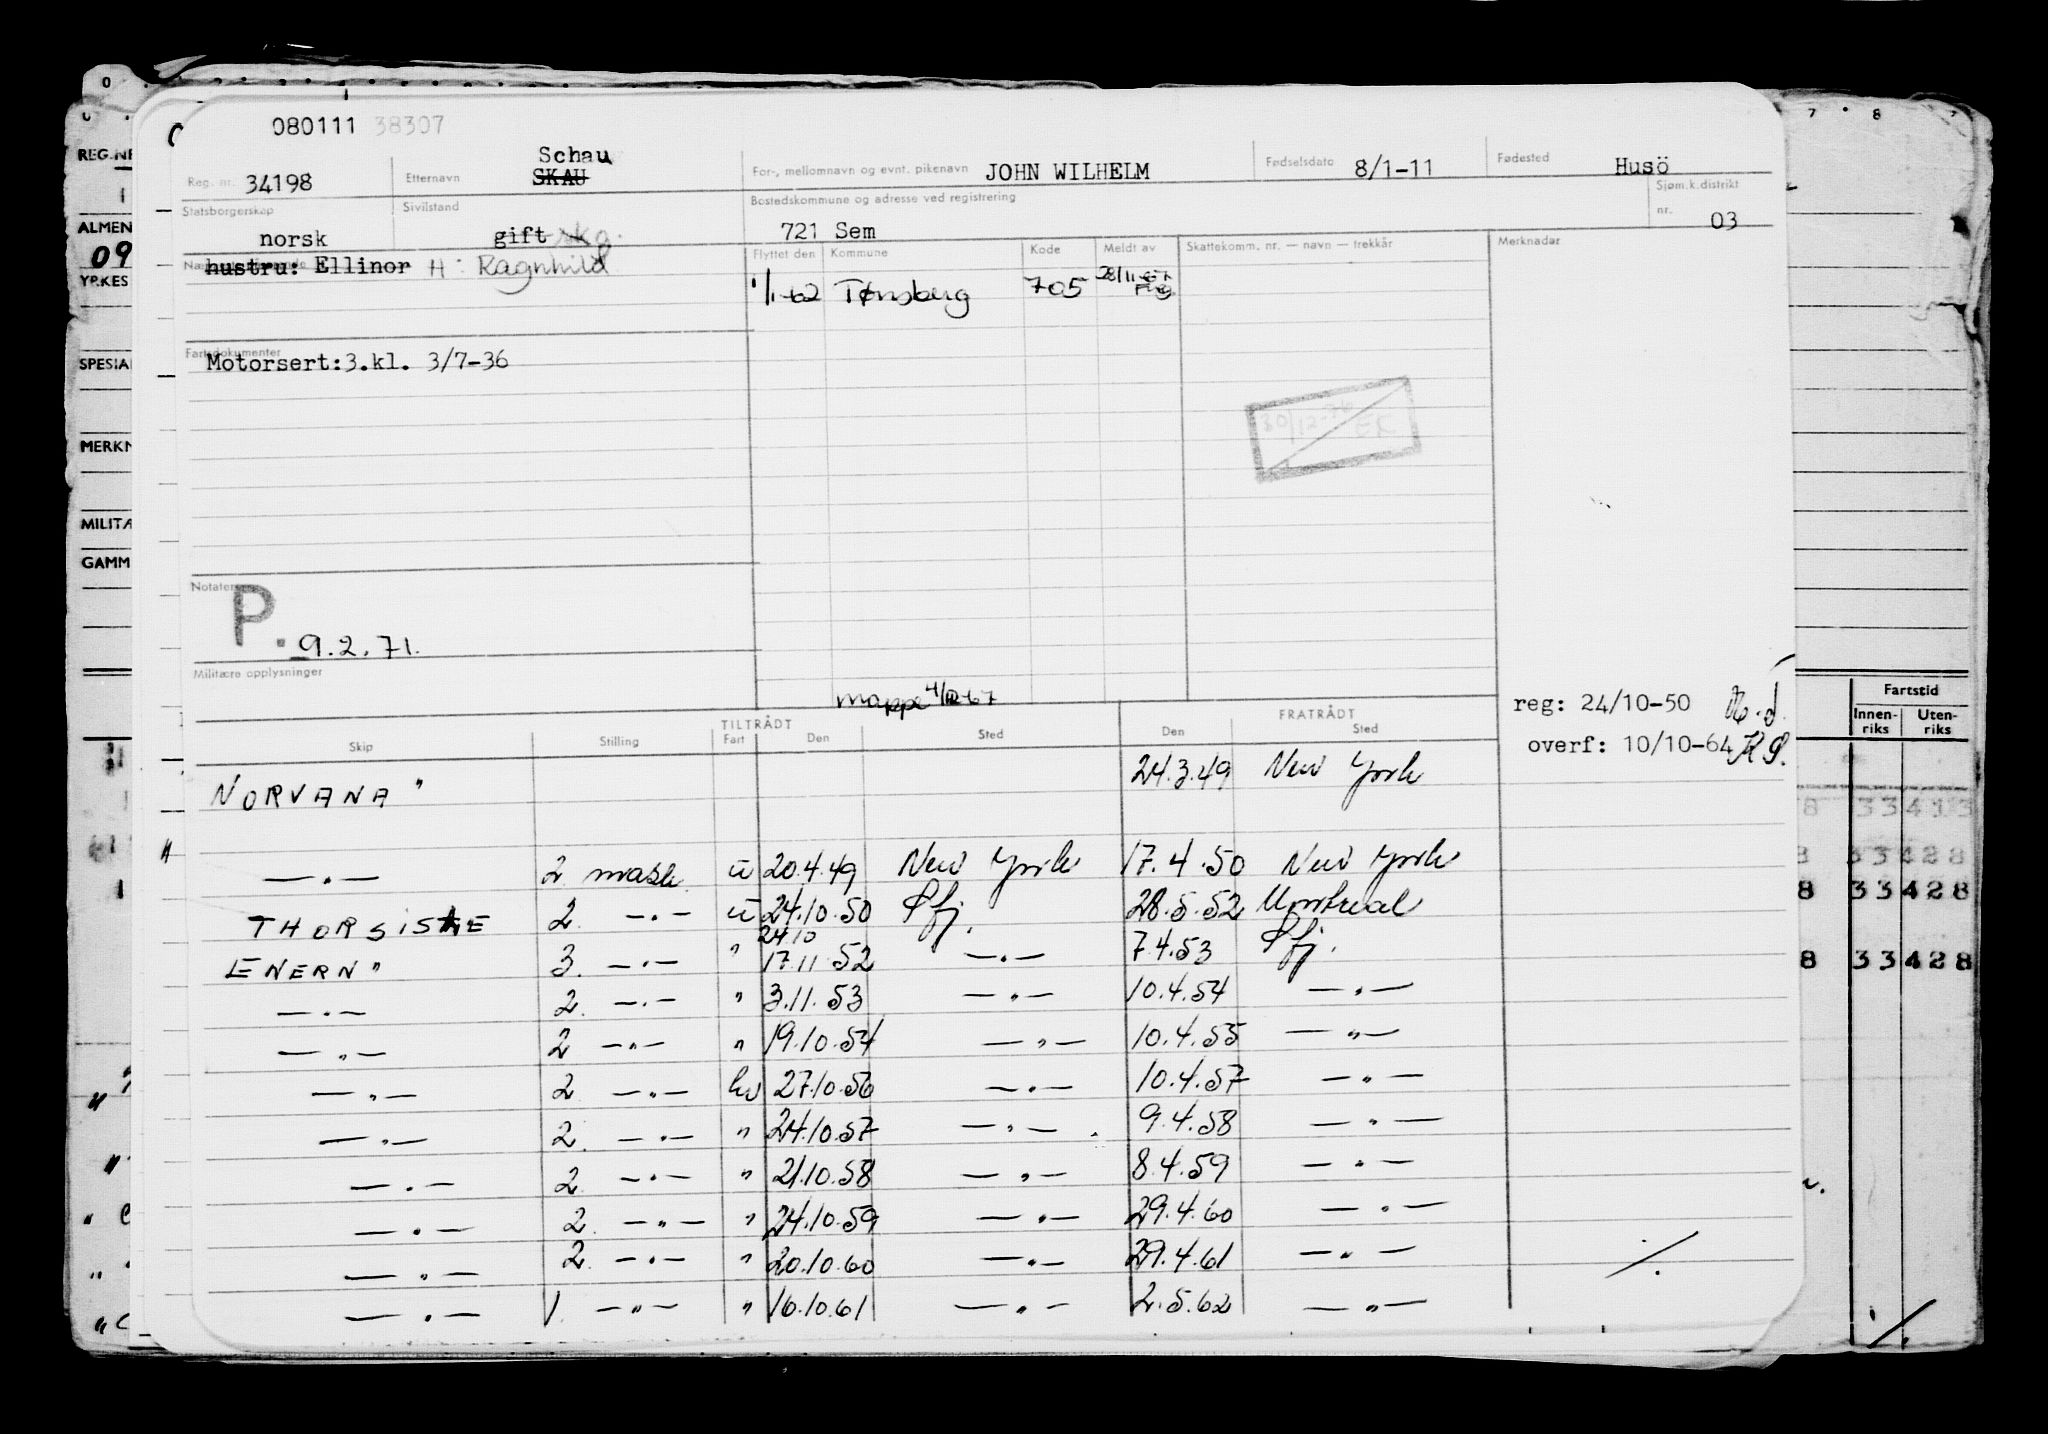 080111 38307
Schau
Reg. nr. 34198 Etternavn SKAU For-, mellomnavn og evnt. pikenavn JOHN WILHELM Fødselsdato 8/1-11 Fødested Husö
Statsborgerskap Sivilstand Bostedskommune og adresse ved registrering Sjøm.k.distrikt nr. 03
norsk gift skg. 721 Sem
hustru: Ellinor H: Ragnhild
Flyttet den Kommune Kode Meldt av Skattekomm. nr. — navn — trekkår Merknader
1/1-62 Tønsberg 705 28/11-67
Fartsdokumenter
Motorsert:3.kl. 3/7-36
30/12-76 EK
Notater
P. 9.2.71.
Militære opplysninger
mappe 4/12-67
reg: 24/10-50
overf: 10/10-64
TILTRÅDT FRATRÅDT
Skip Stilling Fart Den Sted Den Sted
NORVANA " 24.3.49 New York
— " — 2. mask. u 20.4.49 New York 17.4.50 New York
THORSISTLE 2. — " — u 24.10.50 Sfj. 28.5.52 Montreal
24.10
ENERN " 3. — " — " 17.11.52 — " — 7.4.53 Sfj.
— " — 2. — " — " 3.11.53 — " — 10.4.54 — " —
— " — 2 — " — " 19.10.54 — " — 10.4.55 — " —
— " — 2 — " — hv 27.10.56 — " — 10.4.57 — " —
— " — 2. — " — " 24.10.57 — " — 9.4.58 — " —
— " — 2. — " — " 21.10.58 — " — 8.4.59 — " —
— " — 2. — " — " 24.10.59 — " — 29.4.60 — " —
— " — 2. — " — " 20.10.60 — " — 29.4.61 — " —
— " — 1. — " — " 16.10.61 — " — 2.5.62 — " —
REG.NR
ALMEN
09
YRKES
SPESIA
MERKN
MILITÆ
GAMM
7 8
Fartstid
Innen-riks Uten-riks
8 33413
8 33428
8 33428
8 33428